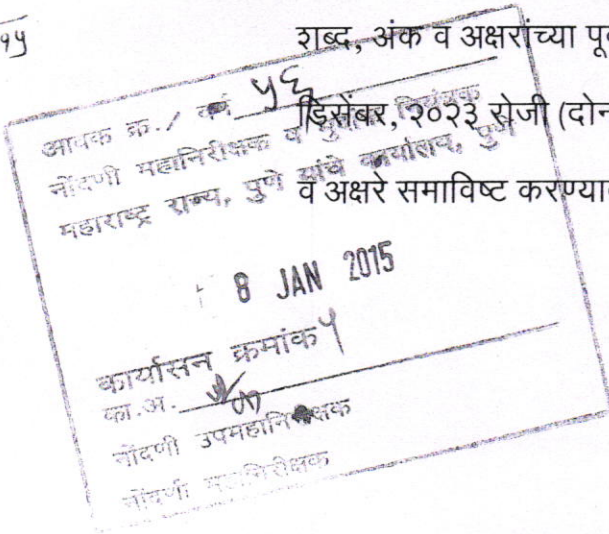 १५
शब्द, अंक व अक्षरांच्या पूर्व
डिसेंबर, २०२३ रोजी (दोन
व अक्षरे समाविष्ट करण्या
आवक क्र./ ५६
नोंदणी महानिरीक्षक व मुद्रांक नियंत्रक
महाराष्ट्र राज्य, पुणे यांचे कार्यालय, पुणे
8 JAN 2015
कार्यासन क्रमांक ५
का.अ.
नोंदणी उपमहानिरीक्षक
नोंदणी महानिरीक्षक